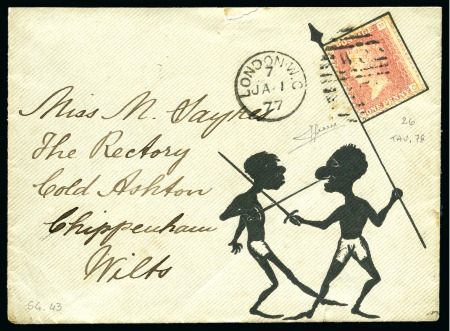 LONDON·W.C
7
JA-1
77
ONE PENNY
26
TAV. 78
Miss M. Sayner
The Rectory
Cold Ashton
Chippenham
Wilts